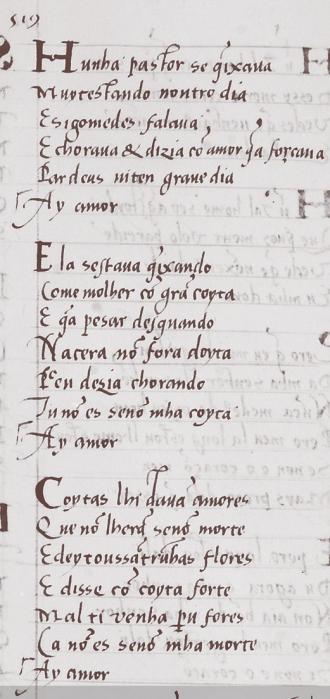 519
Hunha pastor se q̃ixaua
Muyt estando noutro dia
E sigo medes falaua
E choraua & dizia cõ amor q̃a forçaua
Par deus uiten graue dia
Ay amor
Ela s estaua q̃ixando
Come molher cõ grã coyta
E q̃a pesar des quando
Nacera nõ fora doyta
Peu dezia chorando
Tu nõ es senõ mha coyta
Ay amor
Coytas lhi daua amores
Que nõ lherã senõ morte
E deytouss antr unhas flores
E disse cõ coyta forte
Mal ti uenha pu fores
Ca nõ es senõ mha morte
Ay amor